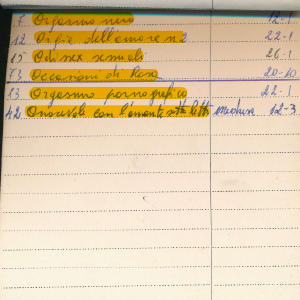 7 Orgasmo nero 12-1
12 Orgie dell'amore n 2 22-1
15 sex sensuali 26-1
73 Occasioni di Rosa 20-10
13 Orgasmo pornografico 22-1
42 Onorevoli con l'amante sotto letto 12-3